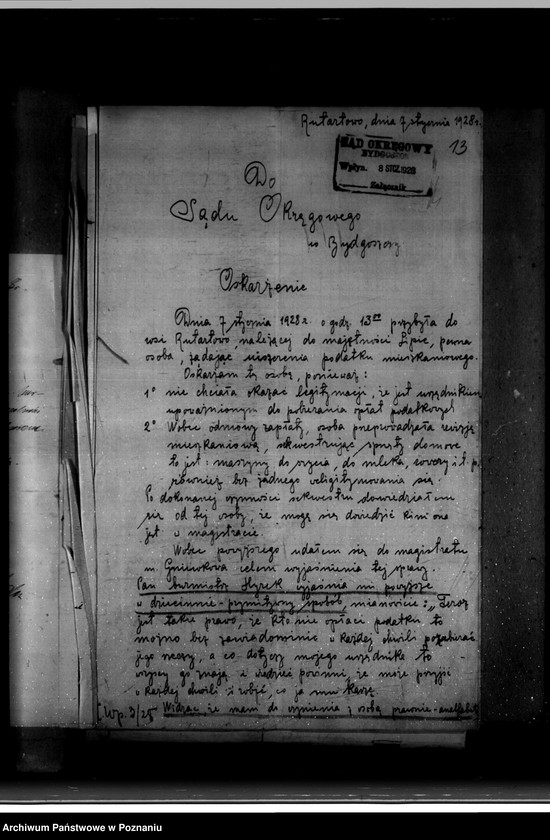 Rutartowo, dnia 7 stycznia 1928 r.
13
SĄD OKRĘGOWY
BYDGOSZCZ
Wpłyn. 8 STCZ. 1928
Załącznik
Do
Sądu Okrągowego
w Bydgoszczy
Oskarżenie
Dnia 7 stycznia 1928 r. o godz. 13 przybyła do
wsi Rutartowo, należącej do majętności Lipie, pewna
osoba, żądając uiszczenia podatku mieszkaniowego.
Oskarżam tę osobę, ponieważ:
1° nie chciała okazać legitymacji, że jest urzędnikiem
upoważnionym do pobierania opłat podatkowych
2° Wobec odmowy zapłaty, osoba przeprowadzała rewizję
mieszkaniową, sekwestrując sprzęty domowe
to jest: maszyny do szycia, do mleka, rowery i t. p.
również bez żadnego wylegitymowania się.
Po dokonanej czynności sekwestru dowiedziałem
się od tej osoby, że mogę się dowiedzić kim ona
jest w magistracie.
Wobec powyższego udałem się do magistratu
m. Gniewkowa celem wyjaśnienia tej sprawy.
Pan burmistrz Hyrek wyjaśnia mi powyższe
w dziecinnie-prymitywny sposób, mianowicie: "Teraz
jest takie prawo, że kto nie opłaci podatku to
można bez zawiadomienia w każdej chwili pozabierać
jego rzeczy, a co dotyczy mojego urzędnika to
wszyscy go znają i wiedzieć powinni, że może przyjść
w każdej chwili i robić, co ja mu każę
Widząc że mam do czynienia z osobą prawnie-analfabetą
Wp. 3/28
Archiwum Państwowe w Poznaniu